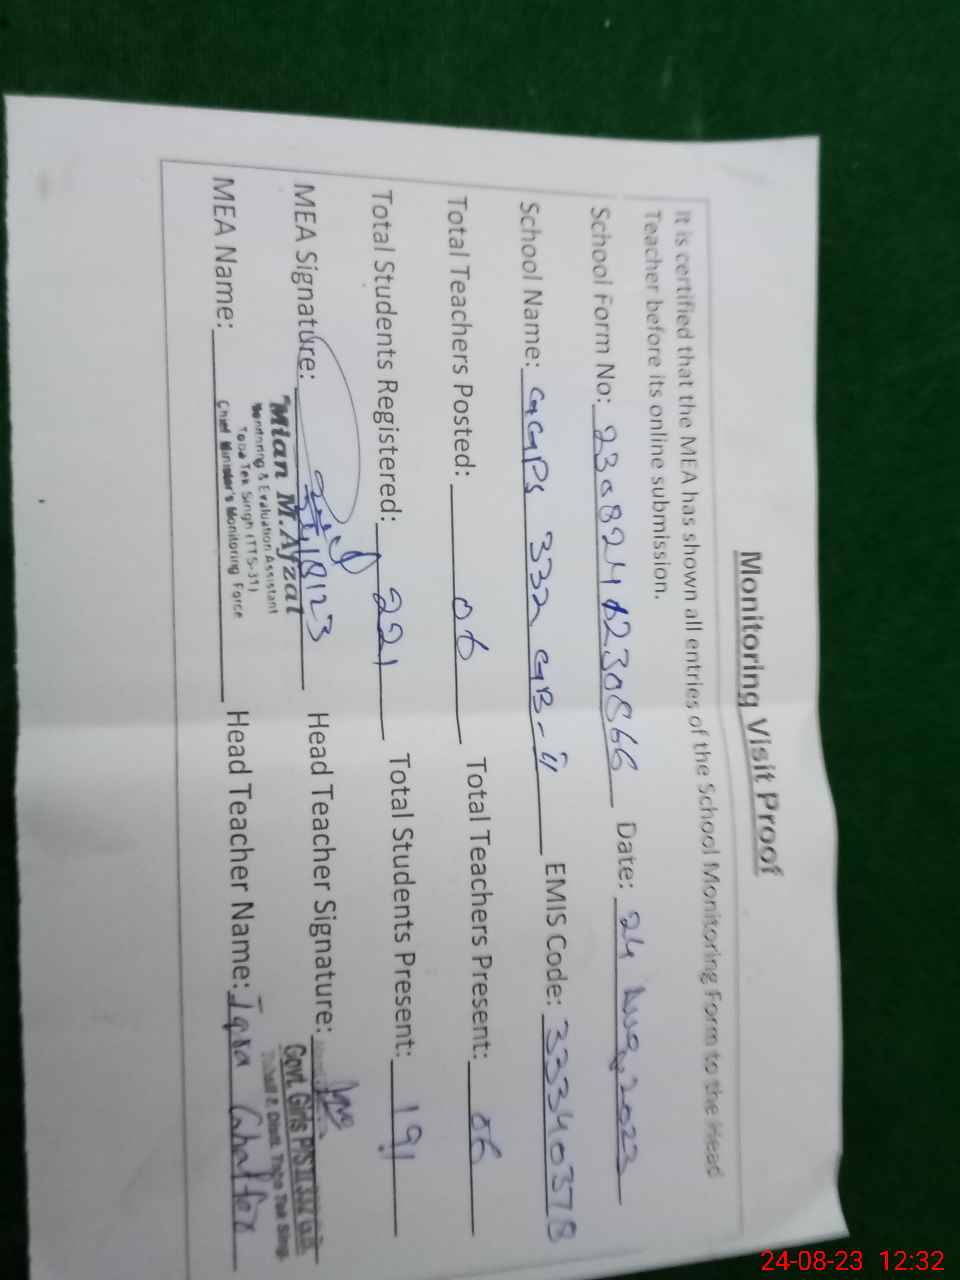 Monitoring Visit Proof
It is certified that the MEA has shown all entries of the School Monitoring Form to the Head
Teacher before its online submission.
School Form No: 230824 Date: 24 Aug, 2023
School Name: GGPS 332 GB-ii EMIS Code: 33340378
Total Teachers Posted: 06 Total Teachers Present: 06
Total Students Registered: 221 Total Students Present: 191
MEA Signature: Head Teacher Signature:
Mian M.Afzal
Monitoring & Evaluation Assistant
Toba Tek Singh (TTS-31)
Chief Minister's Monitoring Force
Govt. Girls P/S II 332 G.B.
Toba Tek Sing.
MEA Name: Head Teacher Name: Iqra Ghaffar
24-08-23 12:32